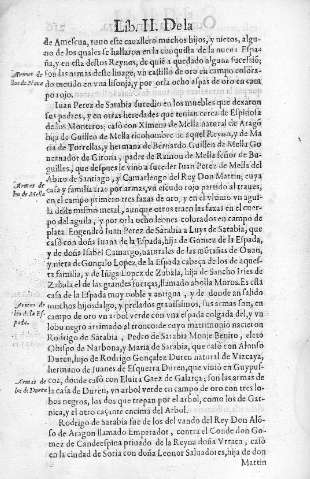 Lib. II. De la
de Amescua, tuuo este cauallero muchos hijos, y nietos, algu-
no de los quales se hallaron en la conquista de la nueua Espa-
ña, y en esta destos Reynos, de quié a quedado alguna sucesió;
Armas de
son las armas deste linage, vn castillo de oro en campo colora-
do metido en vna lisonja, y por orla ocho aspas de oro en cam
po rojo.
Iuan Perez de Sarabia sucedio en los muebles que dexaron
sus padres, y en otras heredades que tenian cerca de Espinosa
de los Monteros; casó con Ximena de Mella natural de Aragó
hija de Guillen de Mella ricohombre de aquel Reyno, y de Ma
ria de Torrellas, y hermana de Bernardo Guillen de Mella Go
uernador de Girona, padre de Ramon de Mella señor de Bo-
guilles, que despues le vino a suceder Iuan Perez de Mella del
Abito de Santiago, y Camarlengo del Rey Don Martin; cuya
Armas de
los de Mella.
casa y familia trae por armas, vn escudo rojo partido al traues,
en el campo primero tres fazas de oro, y en el vltimo vn aguila
deste mismo metal, aunque otros traen las fazas en el cuer-
po del aguila, y por orla ocho leones colorados en campo de
plata. Engendró Iuan Perez de Sarabia a Luys de Sarabia, que
casó con doña Iuana de la Espada, hija de Gomez de la Espada,
y de doña Isabel Camargo, naturales de las mótañas de Ouan,
y nieta de Gonçalo Lopez de la Espada cabeça de los de aques-
ta familia, y de Iñiga Lopez de Zabala, hija de Sancho Iñes de
Zabala el de las grandes fuerças, llamado abolla Moros. Es esta
casa de la Espada muy noble y antigua, y de donde an salido
Armas de
los de la Es
pada.
muchos hijosdalgo, y prelados grauissimos, sus armas son, en
campo de oro vn arbol verde con vna espada colgada del, y vn
lobo negro arrimado al tronco de cuyo matrimonio nacieron
Rodrigo de Sarabia, Pedro de Sarabia Monje Benito, electo
Obispo de Narbona, y Maria de Sarabia, que casó con Alonso
Duren, hijo de Rodrigo Gonçalez Duren natural de Vizcaya,
hermano de Iuanes de Esquerra Duren, que viuio en Guypus-
Armas de
los de Duren
coa, donde casó con Eluira Gaez de Galarça, son las armas de
la casa de Duren, vn arbol verde en campo de oro con tres lo-
bos negros, los dos que trepan por el arbol, como los de Gar-
nica, y el otro cayente encima del Arbol.
Rodrigo de Sarabia fue de los del vando del Rey Don Aló-
so de Aragon llamado Emperador, contra el Conde don Go-
mez de Candeespina priuado de la Reyna doña Vrraca, casó
en la ciudad de Soria con doña Leonor Saluadores, hija de don
Martin